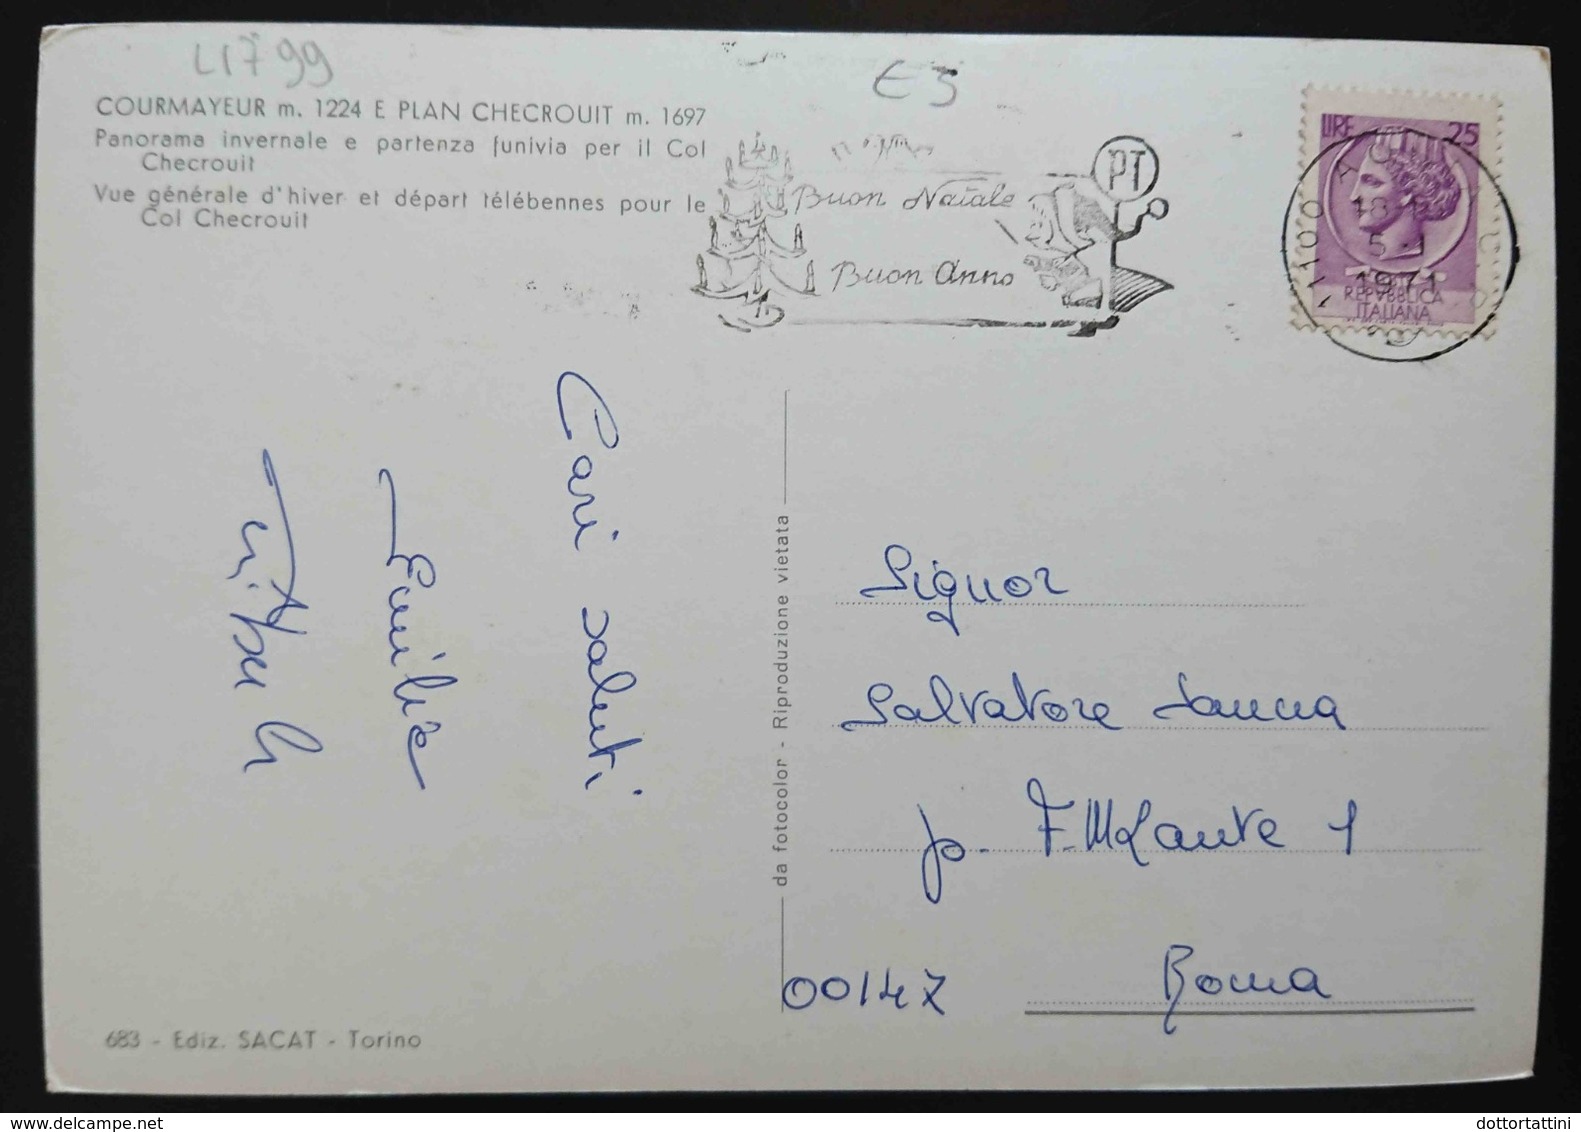 LI799
€5
COURMAYEUR m. 1224 E PLAN CHECROUIT m. 1697
Panorama invernale e partenza funivia per il Col
Checrouit
Vue générale d'hiver et départ télébennes pour le
Col Checrouit
Buon Natale
Buon Anno
PT
LIRE 25
1971
REPVBBLICA
ITALIANA
Cari saluti
Emilia
da fotocolor - Riproduzione vietata
Signor
Salvatore Sanna
p. F. M Lante 1
00147 Roma
683 - Ediz. SACAT - Torino
dottortattini